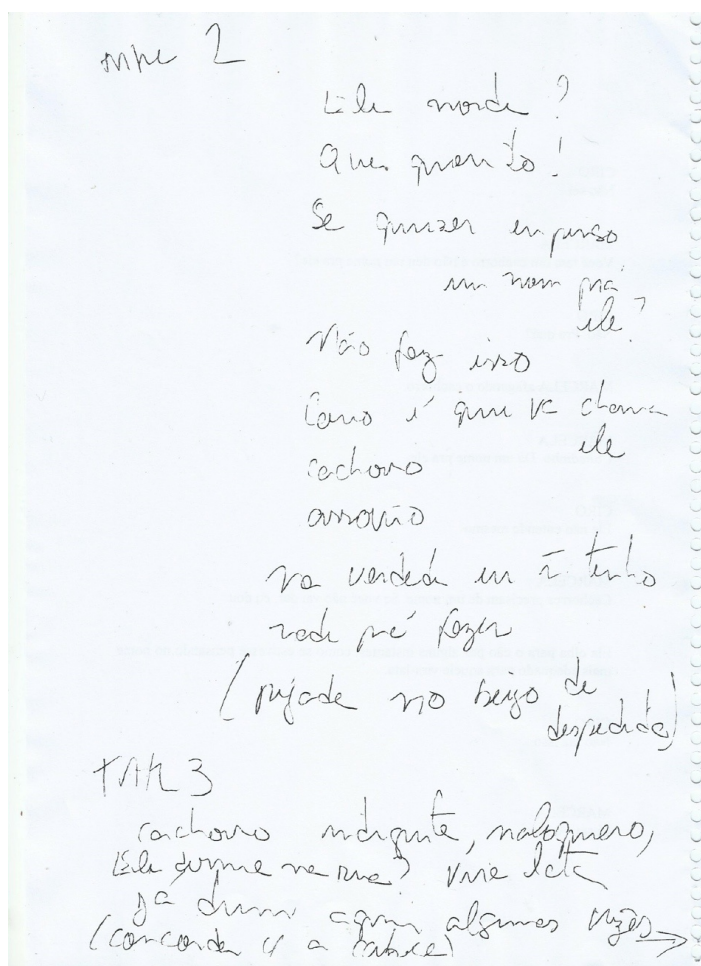 2
Ele morde?
Que gracinha!
Se quizer eu penso
um nome prá
ele?
Não faz isso
Como é que vc chama
ele
cachorro
na verdade eu ñ tenho
nada prá fazer
(pegada no beijo de
despedida)
TAKE 3
cachorro indigente, maloquero,
Ele dorme na rua? vira lata
já dormi aqui algumas vezes →
(concorda c/ a cabeça)